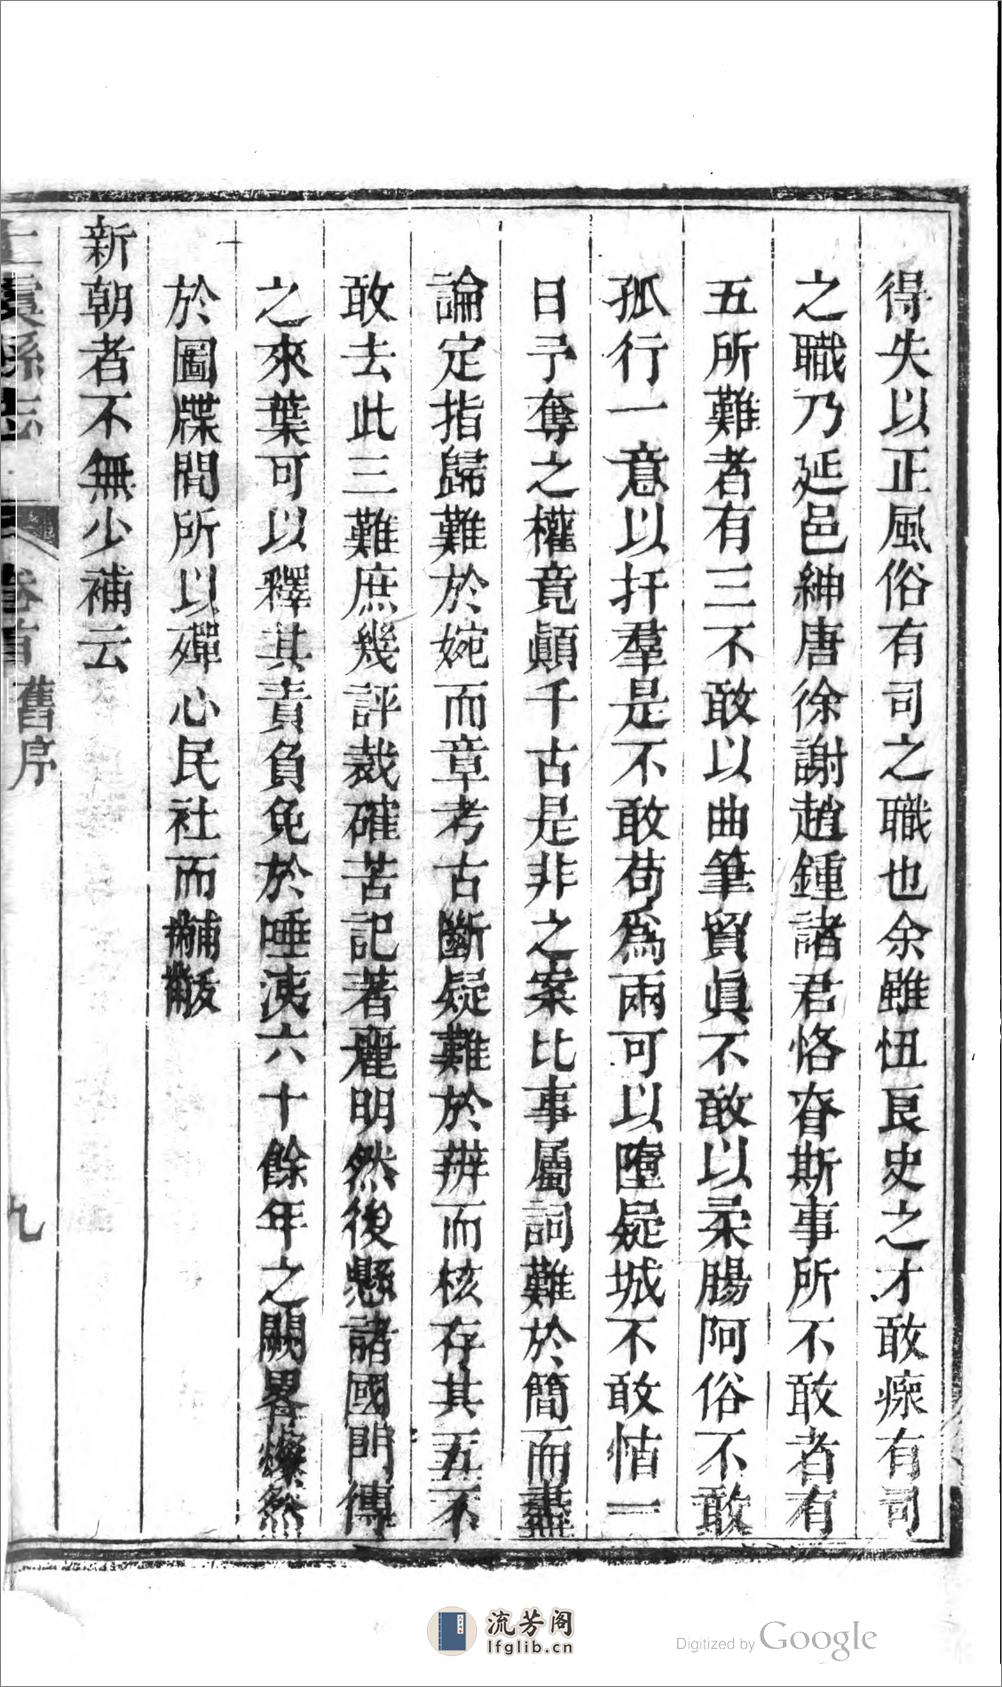 得失以正風俗有司之職也余雖忸良史之才敢瘝有司
之職乃延邑紳唐徐謝趙鍾諸君恪脊斯事所不敢者有
五所難者有三不敢以曲筆貿眞不敢以柔腸阿俗不敢
孤行一意以扞羣是不敢苟爲兩可以墮疑城不敢恃一
日予奪之權竟顚千古是非之案比事屬詞難於簡而盡
論定指歸難於婉而章考古斷疑難於辨而核存其五不
敢去此三難庶幾評裁確苦記著麗明然後懸諸國門傳
之來葉可以釋其責負免於唾洟六十餘年之闕畧燦然
於圖牒間所以殫心民社而黼黻
新朝者不無少補云
上虞縣志
卷首
舊序
九
流芳阁
lfglib.cn
Digitized by Google